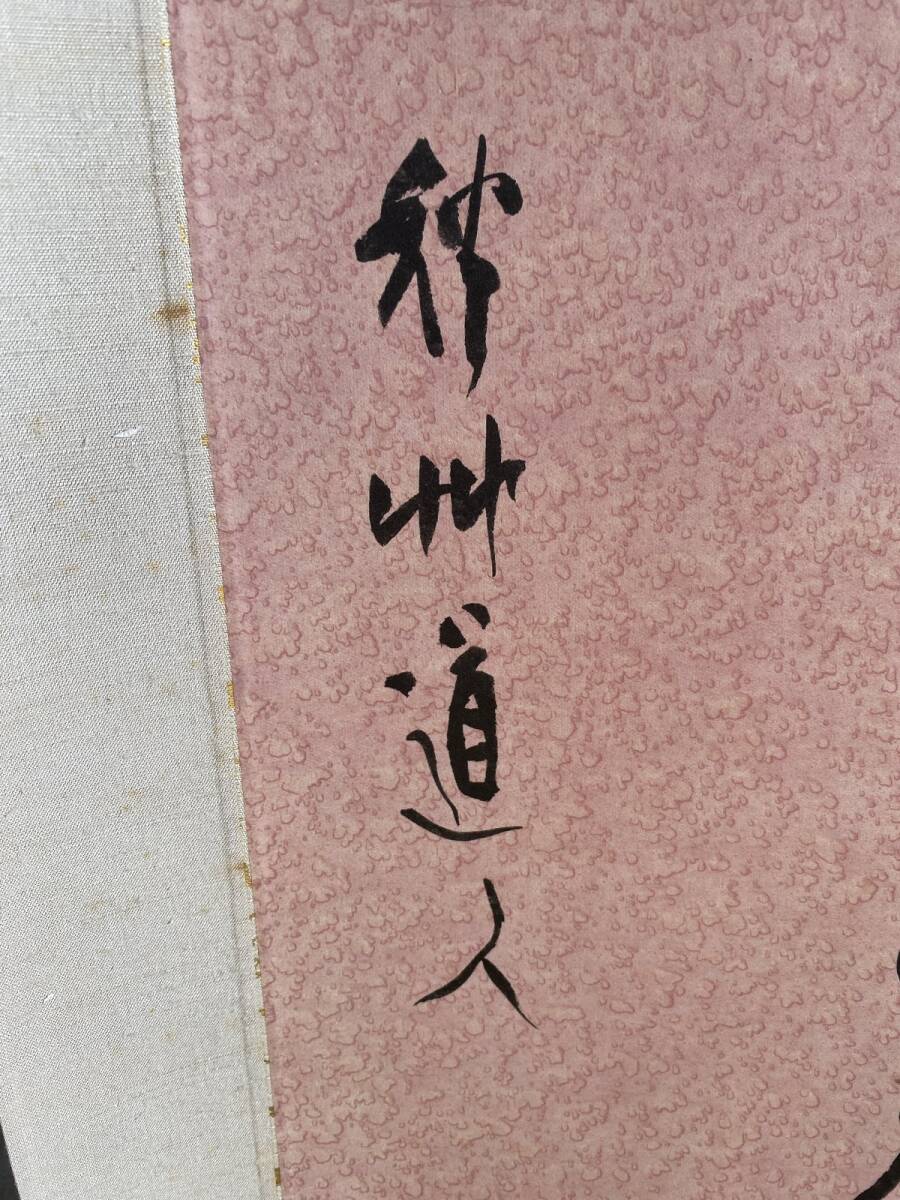 秋艸道人